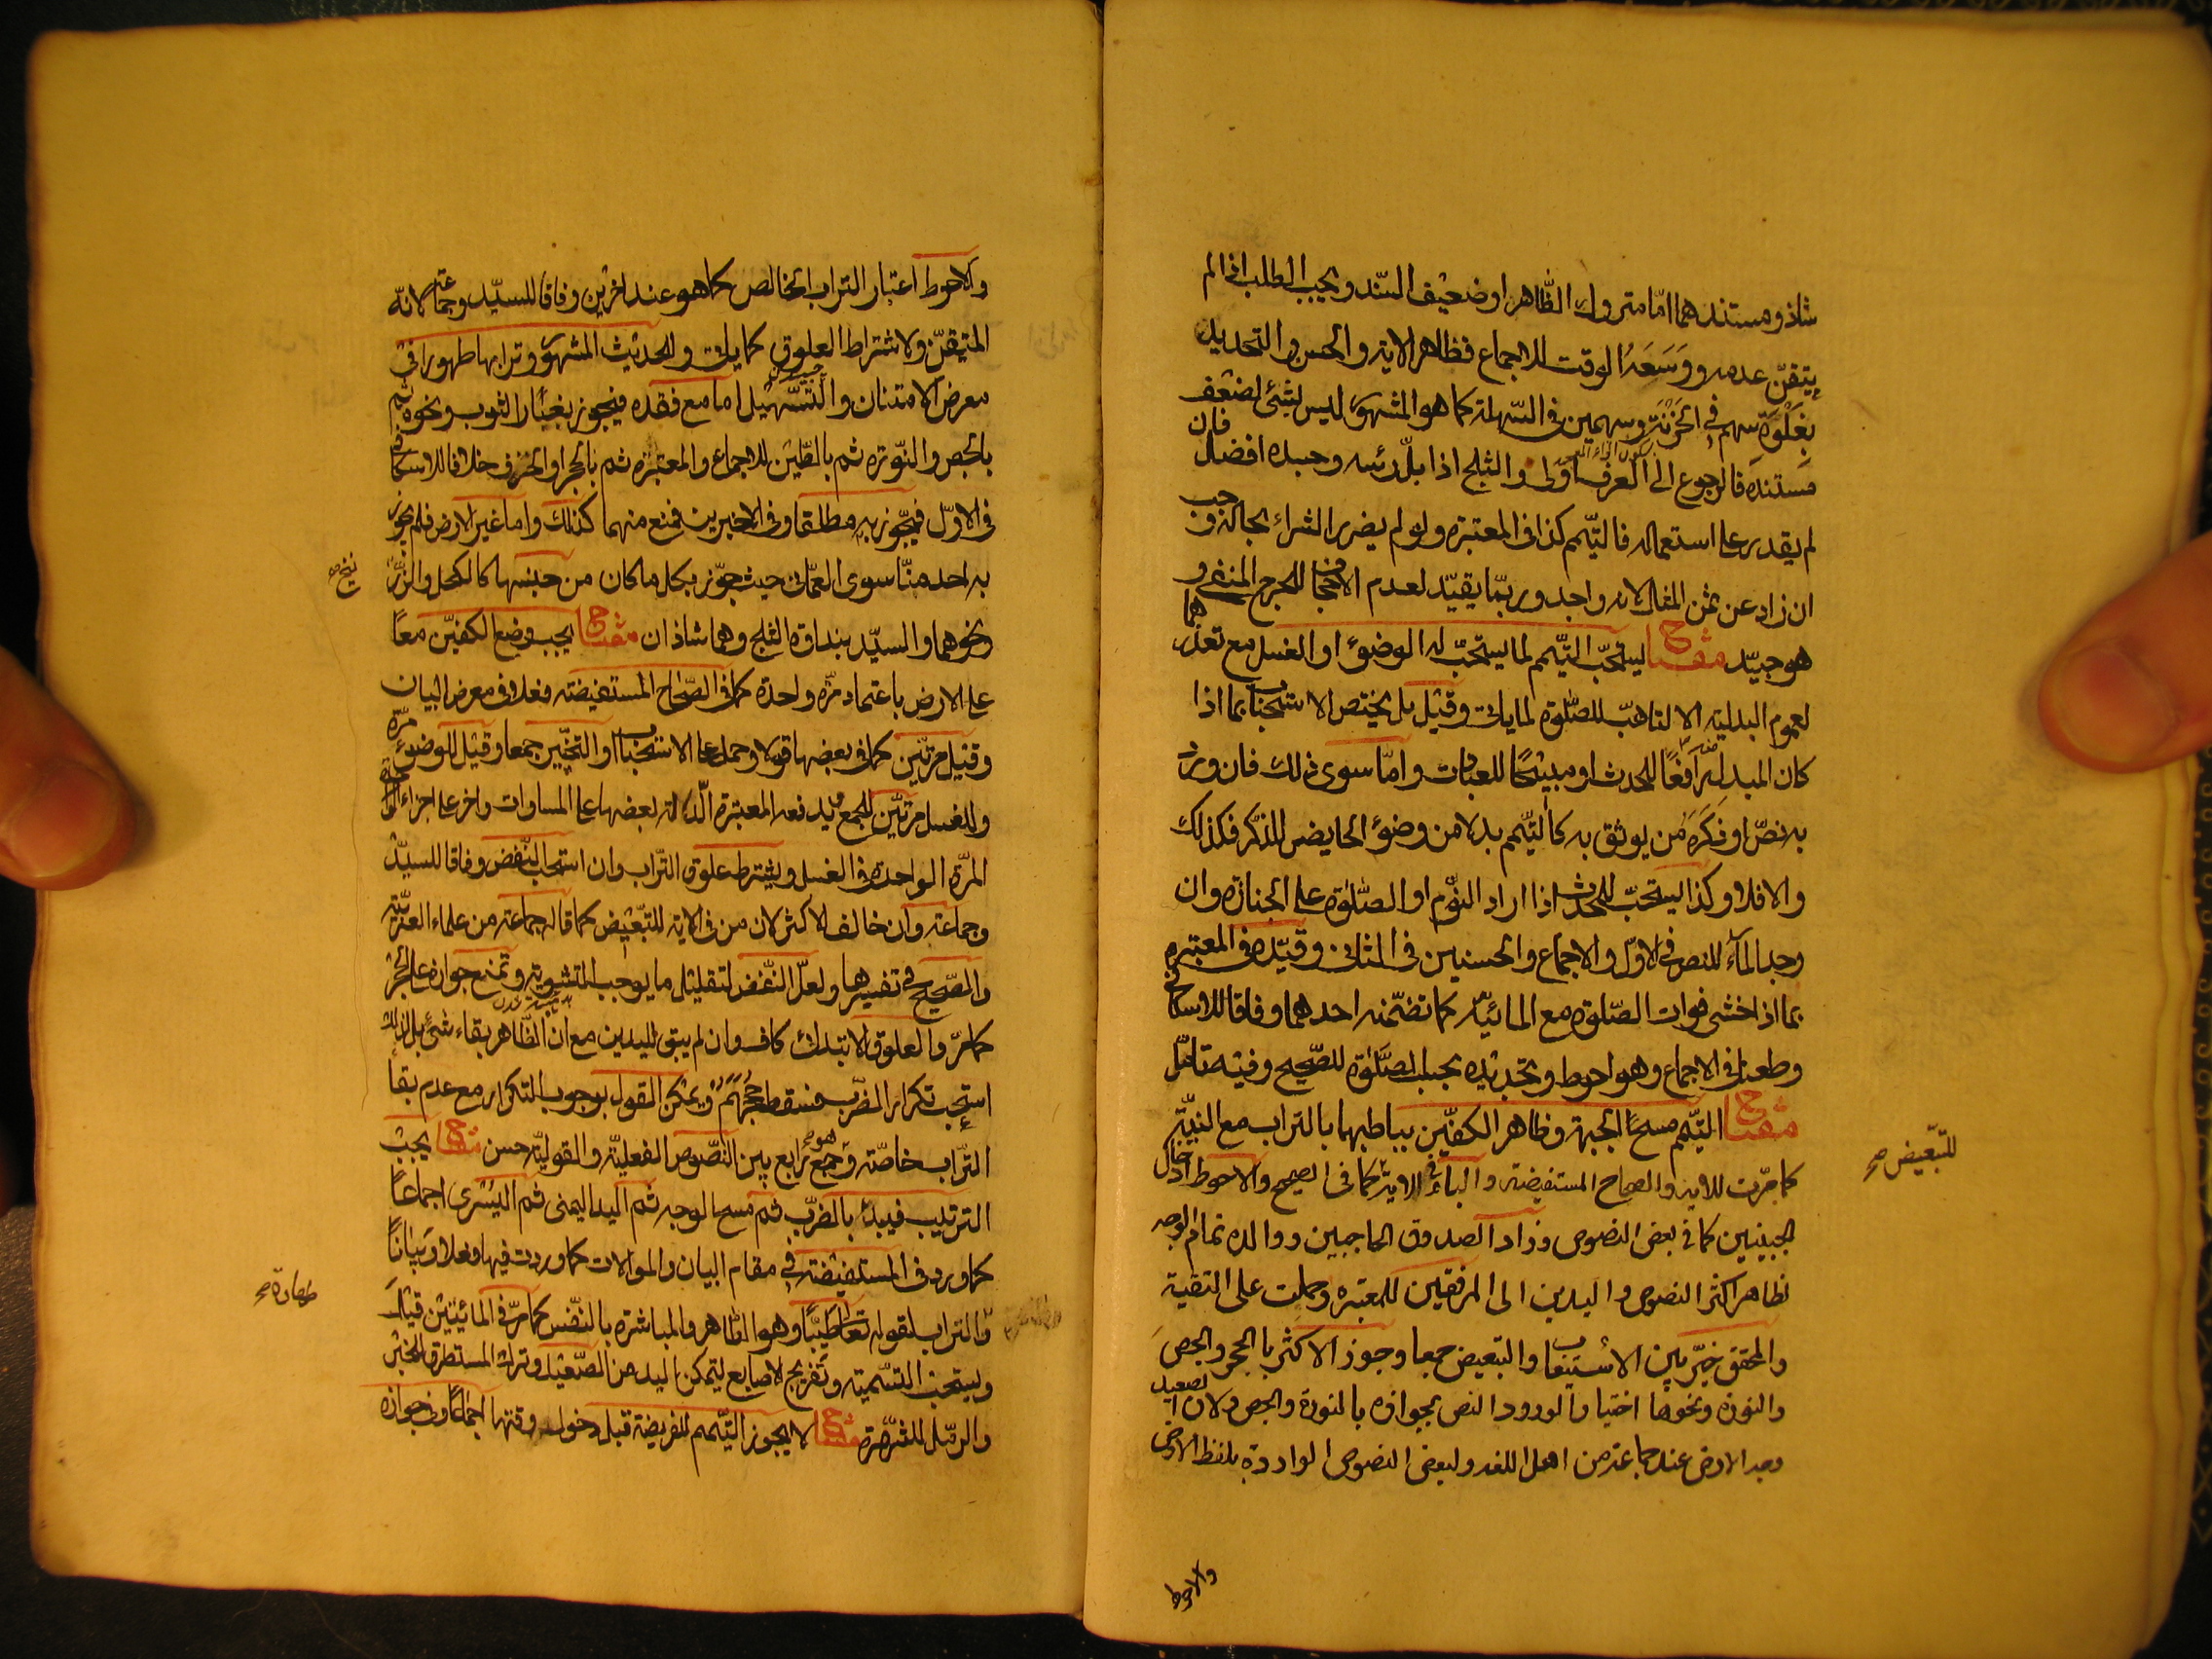 شاذ ومستندهما اما متروك الظاهر او ضعيف السند ويجب الطلب اذا لم
يتيقن عدمه وَسَعَةُ الوقت للاجماع فظاهر الاية والحسن والتحديد
بغَلْوَةِ سهم في الحَزْنَةِ وسهمين في السهلة كما هو المشهور ليس بشئ لضعف
مستنده فالرجوع الى العرف اولى والثلج اذا بلّ رئسه وجسده افضل فان
لم يقدر على استعماله فالتيمم كذا في المعتبرة ولو لم يضر الشراء بحاله وجب
ان زاد عن ثمن المثل لانه واجد وربما يقيد لعدم الاجحاف للحرج المنفي و
هو جيد مفتاح يستحب التيمم لما يستحب له الوضوء او الغسل مع تعذرهما
لعموم البدلية الا لتاهب للصلوة لما ياتي وقيل بل يختص الاستحباب بما اذا
كان المبدل رافعًا للحدث او مبيحًا للعبادات واما سوى ذلك فان ورد
به نص او ذكره من يوثق به كالتيمم بدلا من وضوء الحايض للذكر فكذلك
والا فلا وكذا يستحب للمحدث اذا اراد النوم او الصلوة على الجنازة وان
وجد الماء للنص في الاول والاجماع والحسنين في الثاني وقيده في المعتبر
بما اذا خشي فوات الصلوة مع المائية كما تضمنه احدهما وفاقا للاسكافي
وطعن في الاجماع وهو احوط وتجديده بحسب الصلوة للصحيح وفيه تامل
مفتاح التيمم مسح الجبهة وظاهر الكفين بباطنهما بالتراب مع النية
كما مرت للاية والصحاح المستفيضة والباء في الاية كما في الصحيح والاحوط ادخال
للتبعيض صح
الجبينين كما في بعض النصوص وزاد الصدوق الحاجبين ووالده تمام الوجه
لظاهر اكثر النصوص واليدين الى المرفقين للمعتبرة وحملت على التقية
والمحقق خيّر بين الاستيعاب والتبعيض جمعا وجوز الاكثر بالحجر والجص
والنورة ونحوها اختيارا لورود النص بجوازه بالنورة والجص ولان الصعيد
وجه الارض عند جماعة من اهل اللغة ولبعض النصوص الواردة بلفظ الارض
والاحوط
والاحوط اعتبار التراب الخالص كما هو عند اخرين وفاقا للسيد وجماعة لانه
المتيقن ولاشتراط العلوق كما ياتي وللحديث المشهور وترابها طهورا في
معرض الامتنان والتسهيل اما مع فقده فيجوز بغبار الثوب ونحوه ثم
بالجص والنورة ثم بالطين للاجماع والمعتبرة ثم بالحجر او الخزف خلافا للاسكافي
في الاول فيجوز به مطلقا وفي الاخيرين فمنع منهما كذلك واما غير الارض فلم يجوز
به احد منا سوى العماني حيث جوز بكل ما كان من جنسها كالكحل والزرنيخ
ونحوهما والسيد بنداوة الثلج وهما شاذان مفتاح يجب وضع الكفين معًا
على الارض باعتماد مرة واحدة كما في الصحاح المستفيضة فعلا في معرض البيان
وقيل مرتين كما في بعضها قولا وحمل على الاستحباب او التخيير جمعا وقيل للوضوء مرة
وللغسل مرتين للجمع ويدفعه المعتبرة الدالة بعضها على المساوات واخر على اجزاء
المرة الواحدة في الغسل ويشترط علوق التراب وان استحب النفض وفاقا للسيد
وجماعة وان خالف الاكثر لان من في الاية للتبعيض كما قاله جماعة من علماء العربية
والصحيح في تفسيرها ولعل النفض لتقليل ما يوجب التشويه وتمنع جوازه على الحجر
كما مر والعلوق الابتداء كاف وان لم يبق لليدين مع ان الظاهر بقاء شئ بل لذلك
استحب تكرار الضرب فسقط حججهم ويمكن القول بوجوب التكرار مع عدم بقاء
التراب خاصة وهو جمع رابع بين النصوص الفعلية والقولية حسن مفتاح يجب
الترتيب فيبدأ بالضرب ثم مسح الوجه ثم اليد اليمنى ثم اليسرى اجماعًا
كما ورد في المستفيضة في مقام البيان والموالات كما وردت فيها فعلا وبيانًا
طهارة صح
والتراب لقوله تعالى طيبًا وهو الطاهر والمباشرة بالنفس كما مر في المائيتين قيل
ويستحب التسمية وتفريج الاصابع ليتمكن اليد من الصعيد وترك المستطرق للخبر
والرمل للشهرة مفتاح لا يجوز التيمم للفريضة قبل دخول وقتها اجماعًا وفي جوازه